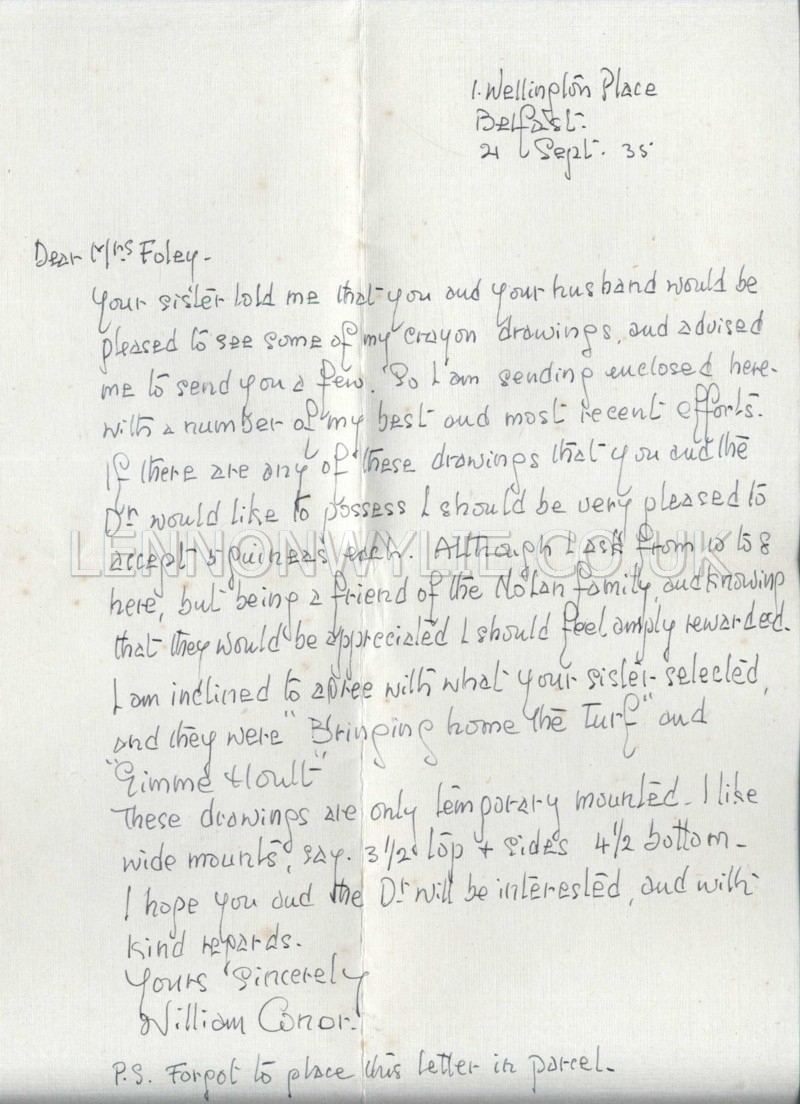 1. Wellington Place
Belfast.
21 Sept. 35
Dear Mrs Foley.
Your sister told me that you and your husband would be
pleased to see some of my crayon drawings, and advised
me to send you a few. So I am sending enclosed here-
with a number of my best and most recent efforts.
If there are any of these drawings that you and the
Dr would like to possess I should be very pleased to
accept 5 guineas each. Although I ask from 10 to 8
LENNONWYLIE.CO.UK
here, but being a friend of the Nolan family, and knowing
that they would be appreciated I should feel amply rewarded.
I am inclined to agree with what your sister selected,
and they were "Bringing home the Turf" and
"Gimme Hoult"
These drawings are only temporary mounted. I like
wide mounts, say. 3 1/2 top + sides 4 1/2 bottom.
I hope you and the Dr will be interested, and with
kind regards.
Yours Sincerely
William Conor.
P.S. Forgot to place this letter in parcel.